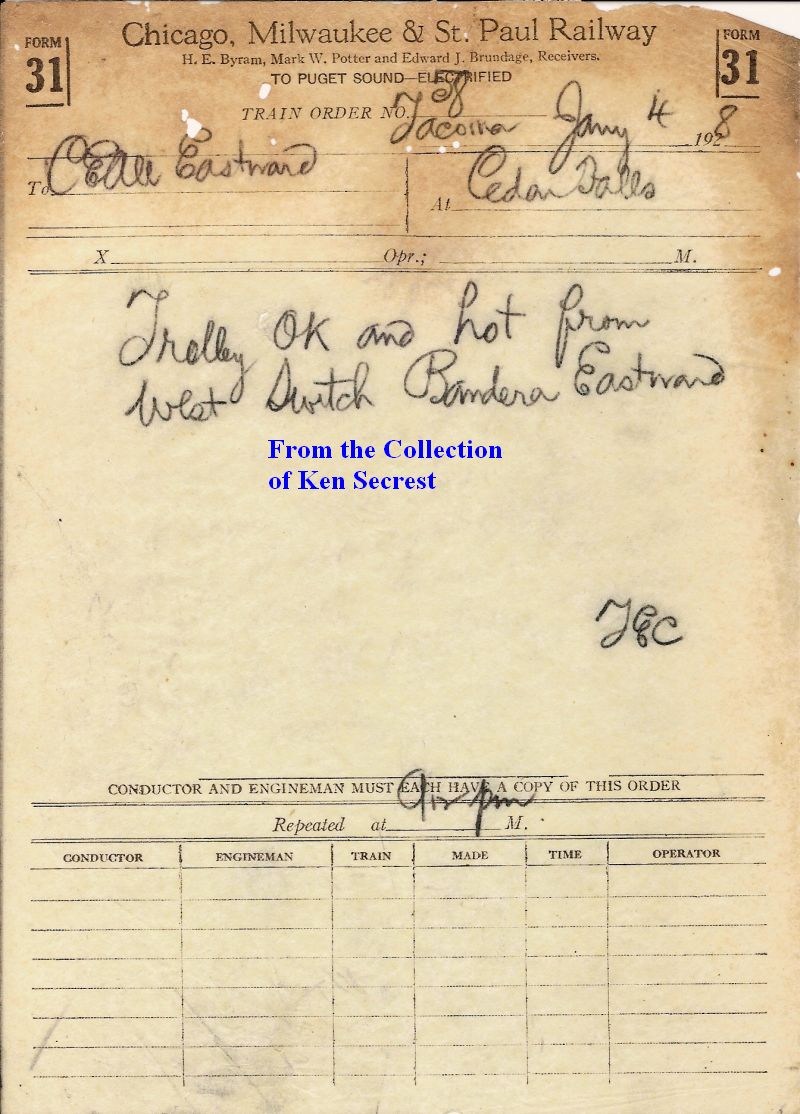 FORM 31
Chicago, Milwaukee & St. Paul Railway
FORM 31
H. E. Byram, Mark W. Potter and Edward J. Brundage, Receivers.
TO PUGET SOUND—ELECTRIFIED
TRAIN ORDER NO. 58
Tacoma Jany 4 1928
To C&E All Eastward
At Cedar Falls
X Opr.; M.
Trolley OK and hot from
West Switch Bandera Eastward
From the Collection
of Ken Secrest
CONDUCTOR AND ENGINEMAN MUST EACH HAVE A COPY OF THIS ORDER
Repeated at pm M.
CONDUCTOR ENGINEMAN TRAIN MADE TIME OPERATOR